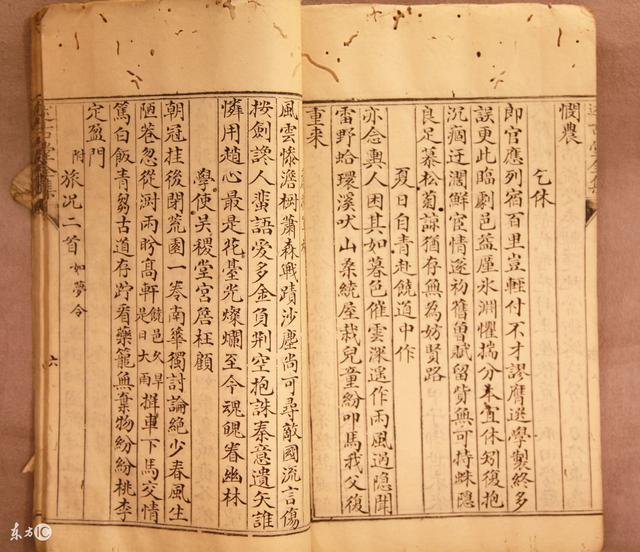 憫農
乞休
郎官應列宿百里豈輕付不才謬膺選學製終多
誤更此臨劇邑益厪氷淵懼揣分本宜休矧復抱
沉痼迂濶鮮宦情遂初舊曾賦留貲無可持蛛隱
良足慕松菊諒猶存無為妨賢路
夏日自青赴饒道中作
亦念輿人困其如暮色催雲深遥作雨風過隱聞
雷野蛤環溪吠山柔繞屋栽兒童紛叩馬我父復
重来
風雲慘澹樹蕭森戰蹟沙塵尚可尋敵國流言傷
按劍讒人蜚語愛多金負荆空抱誅秦意遺矢誰
憐用趙心最是花臺光燦爛至今魂魄眷幽林
學使吴稷堂宫詹枉顧
朝冠挂後閉荒園一卷南華獨討論絶少春風生
陋巷忽從澍雨盼髙軒饒邑久旱是日大雨撾車下馬交情
篤白飯青芻古道存跕看藥籠無棄物紛紛桃李
定盈門
附旅况二首如夢令
六
东方IC